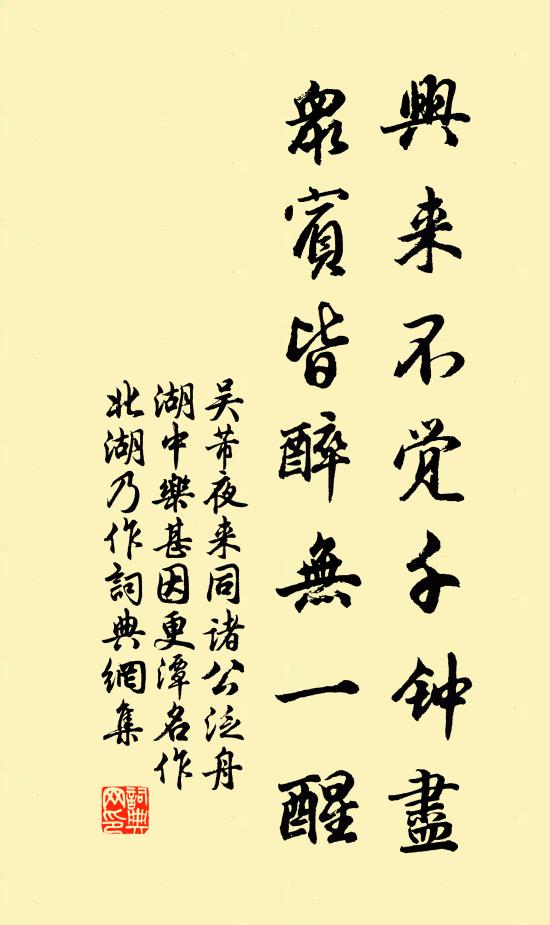 興来不覚千钟盡
眾賓皆醉無一醒
吴芾夜来同诸公泛舟
湖中樂甚因更潭名作
北湖乃作詞典網集
詞典
网印